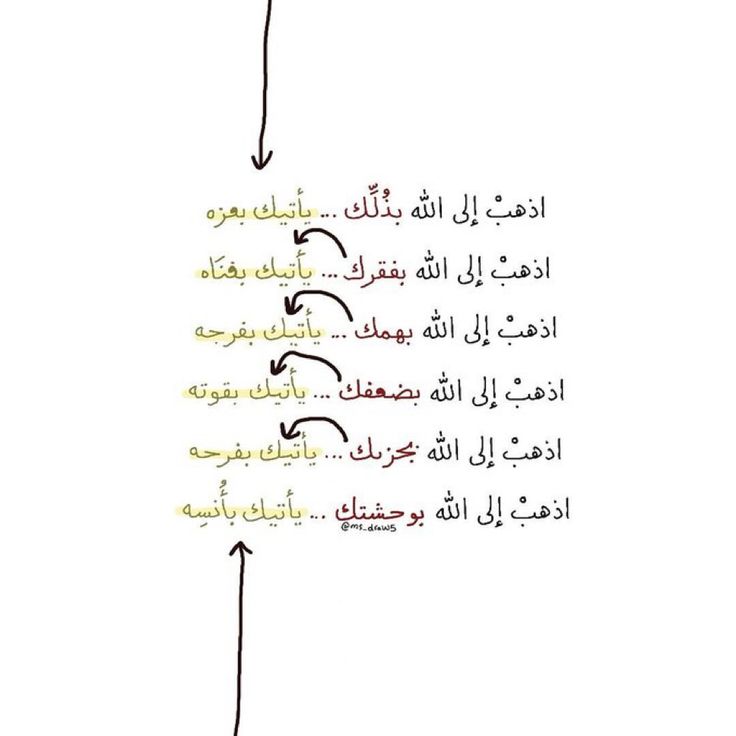 اذهبْ إلى الله بذُلِّك ... يأتيك بعزه
اذهبْ إلى الله بفقرك ... يأتيك بغنَاه
اذهبْ إلى الله بهمك ... يأتيك بفرجه
اذهبْ إلى الله بضعفك ... يأتيك بقوته
اذهبْ إلى الله بحزنك ... يأتيك بفرحه
اذهبْ إلى الله بوحشتك ... يأتيك بأُنسِه
@ms_draw5